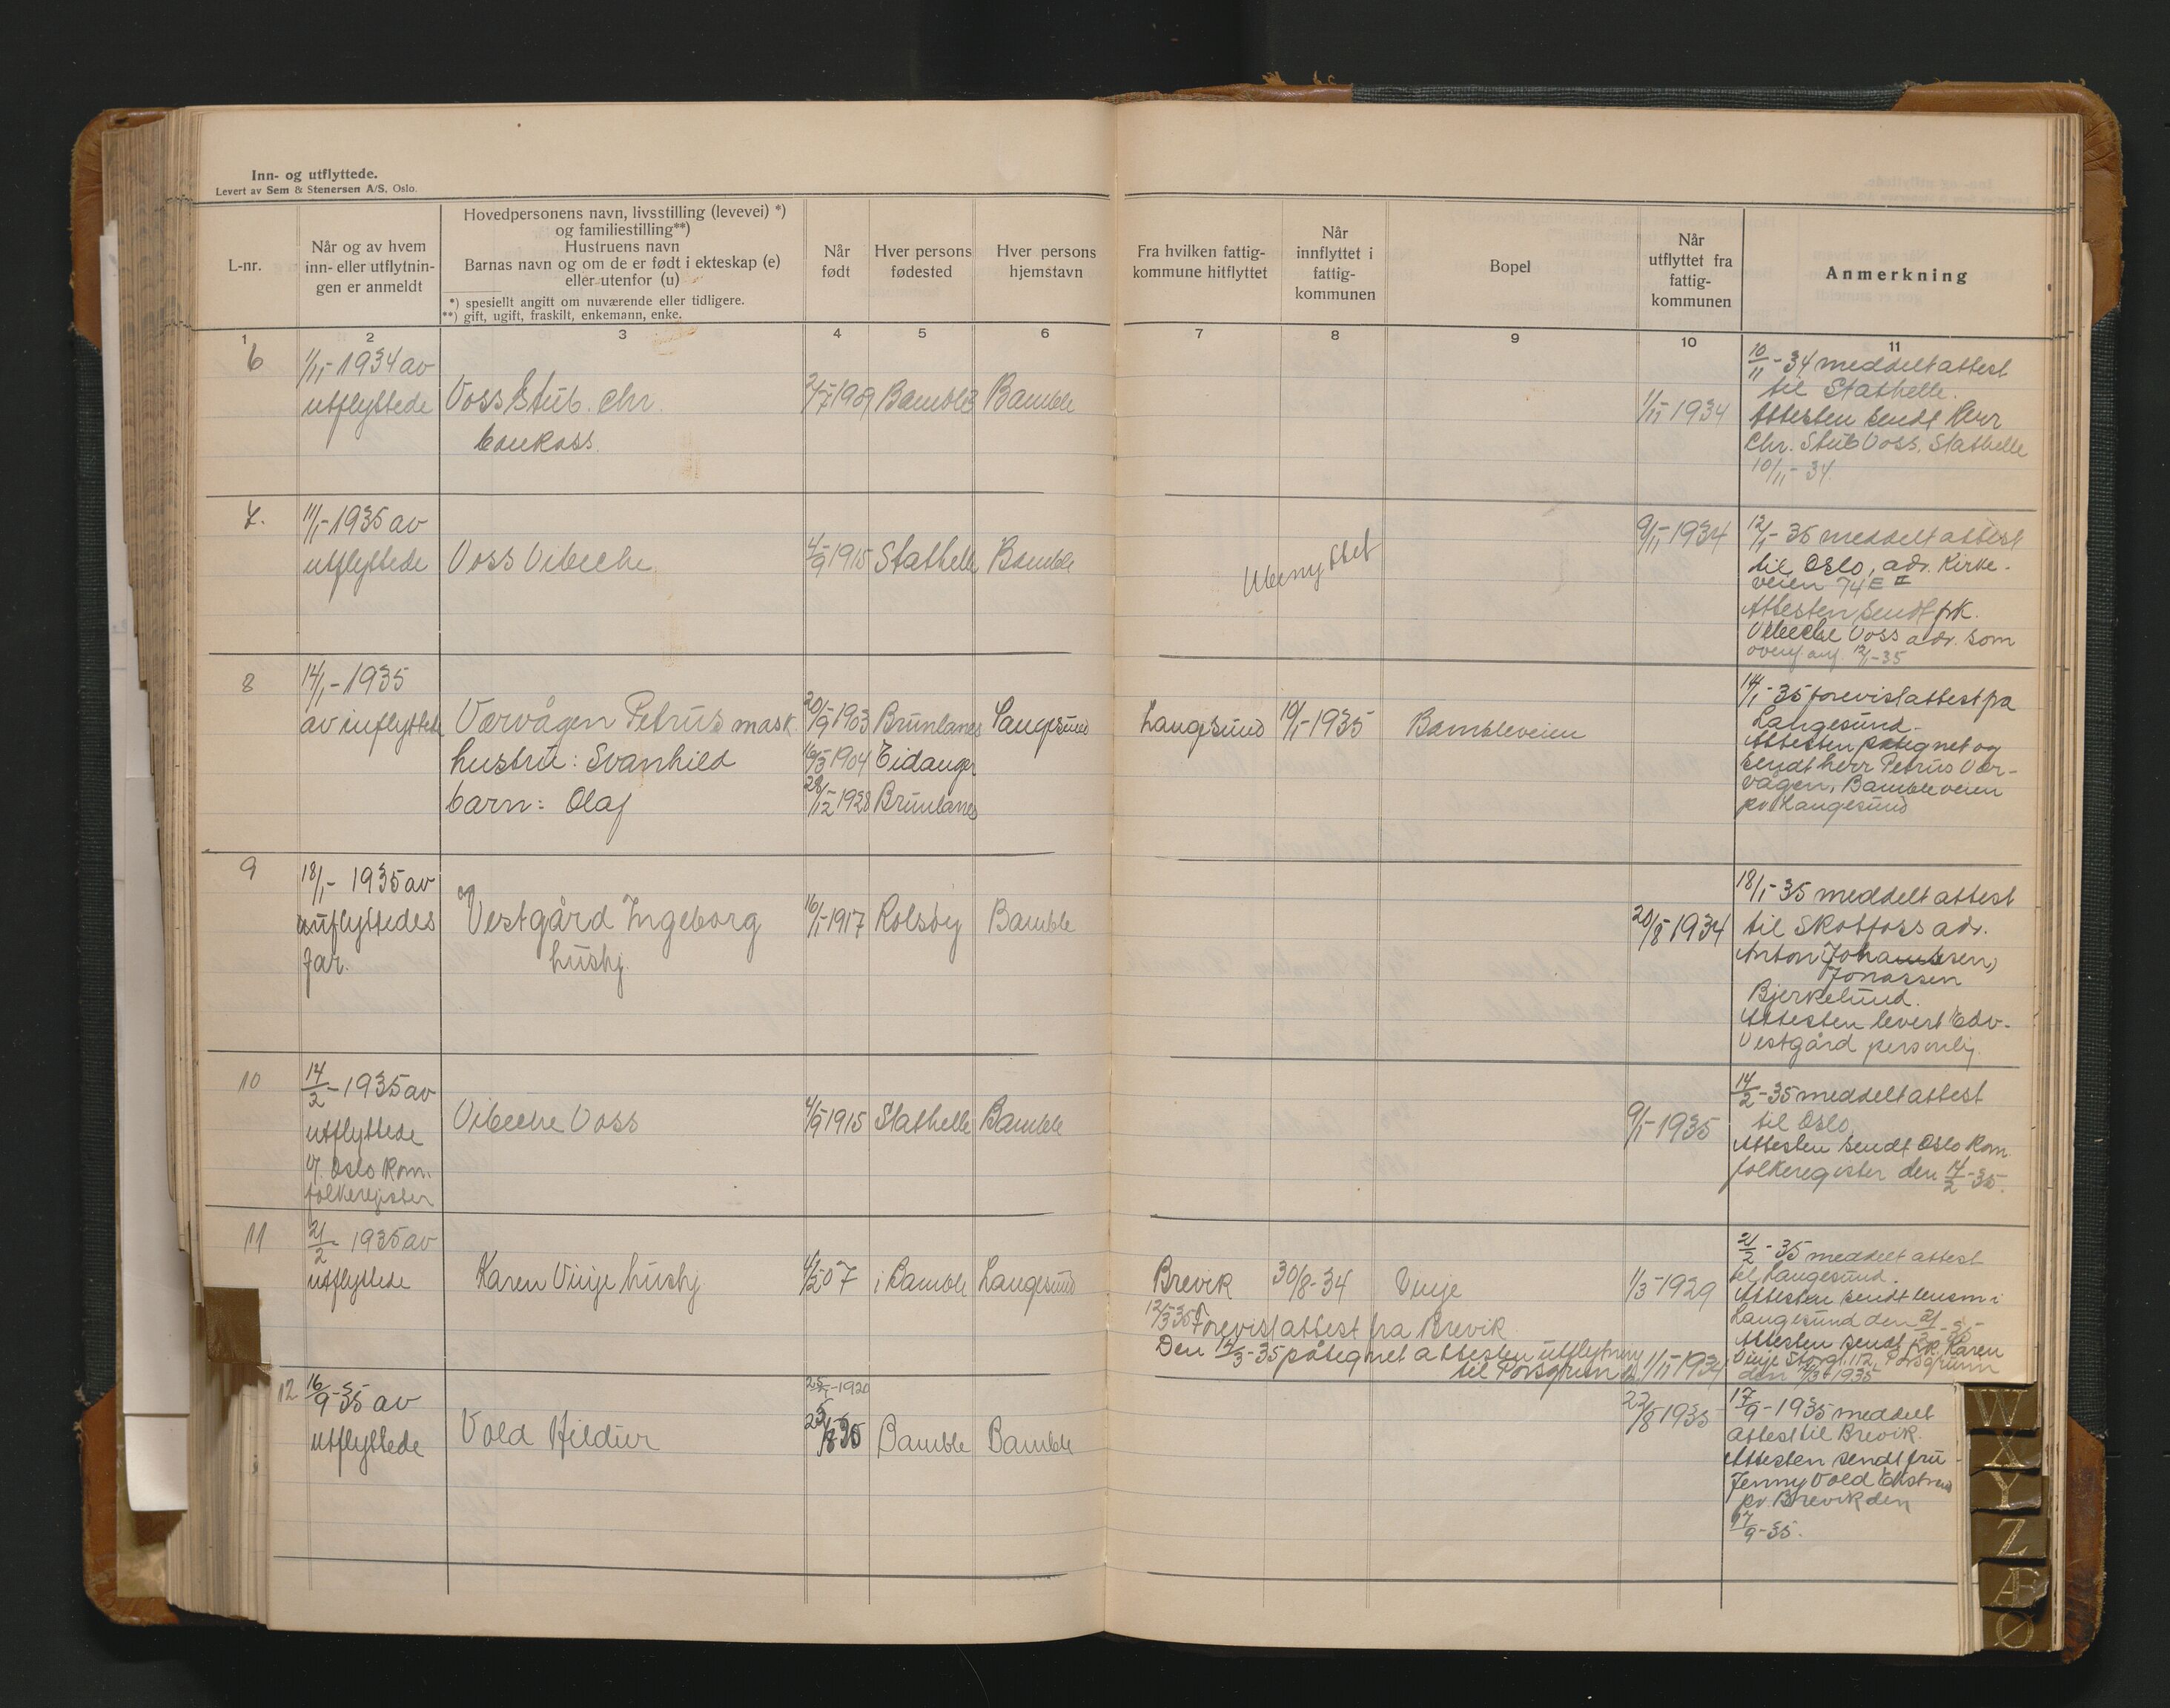 Inn- og utflyttede.
Levert av Sem & Stenersen A/S, Oslo.
L-nr.
Når og av hvem
inn- eller utflytnin-
gen er anmeldt
Hovedpersonens navn, livsstilling (levevei) *)
og familiestilling**)
Hustruens navn
Barnas navn og om de er født i ekteskap (e)
eller utenfor (u)
*) spesiellt angitt om nuværende eller tidligere.
**) gift, ugift, fraskilt, enkemann, enke.
Når
født
Hver persons
fødested
Hver persons
hjemstavn
Fra hvilken fattig-
kommune hitflyttet
Når
innflyttet i
fattig-
kommunen
Bopel
Når
utflyttet fra
fattig-
kommunen
Anmerkning
1 2 3 4 5 6 7 8 9 10 11
6
1/11-1934 av
utflyttede
Voss Stub. Chr.
2/7-1909 Bamble Bamble
1/11 1934
10/11-34 meddelt attest
til Stathelle.
Attesten sendt Herr
Chr. Stub Voss, Stathelle
10/11-34.
7.
11/1-1935 av
utflyttede
Voss Vibeche
4/9-1915 Stathelle Bamble
Ubenyttet
9/11-1934
12/1-35 meddelt attest
til Oslo, adr. Kirke-
veien 74 E II
Attesten sendt frk.
Vibeche Voss adr. som
12/1-35
8
14/1-1935
av innflyttede
Værvågen Petrus mask.
20/9-1903 Brunlanes Langesund
Langesund 10/1-1935 Bambleveien
hustru: Svanhild
1904 Eidanger
barn: Olaf
28/12 1928 Brunlanes
14/1-35 forevist attest fra
Langesund.
Attesten påtegnet og
sendt herr Petrus Vær-
vågen, Bambleveien
pr. Langesund
9
18/1-1935 av
utflyttedes
far.
Vestgård Ingeborg
hushj.
16/1-1917 Rolsøy Bamble
20/8-1934
18/1-35 meddelt attest
til Skotfoss adr.
Anton Johannsen,
Jonassen
Bjerkelund.
Attesten levert Edv.
Vestgård personlig.
10
14/2-1935 av
utflyttede
v. Oslo kom.
folkeregister
Vibeche Voss
4/9-1915 Stathelle Bamble
9/1-1935
14/2-35 meddelt attest
til Oslo.
Attesten sendt Oslo kom.
folkeregister den 14/2-35.
11
21/2-1935 av
utflyttede
Karen Vinje hushj
07 i Bamble Langesund
Brevik 30/8-34 Vinje
1/3-1929
12/3-35 Forevist attest fra Brevik
Den 12/3-35 påtegnet attesten utflytning
til Porsgrunn 1/11-1934
21/2-35 meddelt attest
til Langesund.
Attesten sendt lensm i
Langesund den 21/2-35
Attesten sendt frk. Karen
Vinje Storgt. 112, Porsgrunn
den 12/3-1935
12
16/9-35 av
utflyttede
Vold Hildur
25/5-1920
Bamble Bamble
22/8 1935
17/9-1935 meddelt
attest til Brevik.
Attesten sendt fru
Jenny Vold Ekstrand
pr. Brevik den
17/9-35.
W
X
Y
Z
Æ
Ø